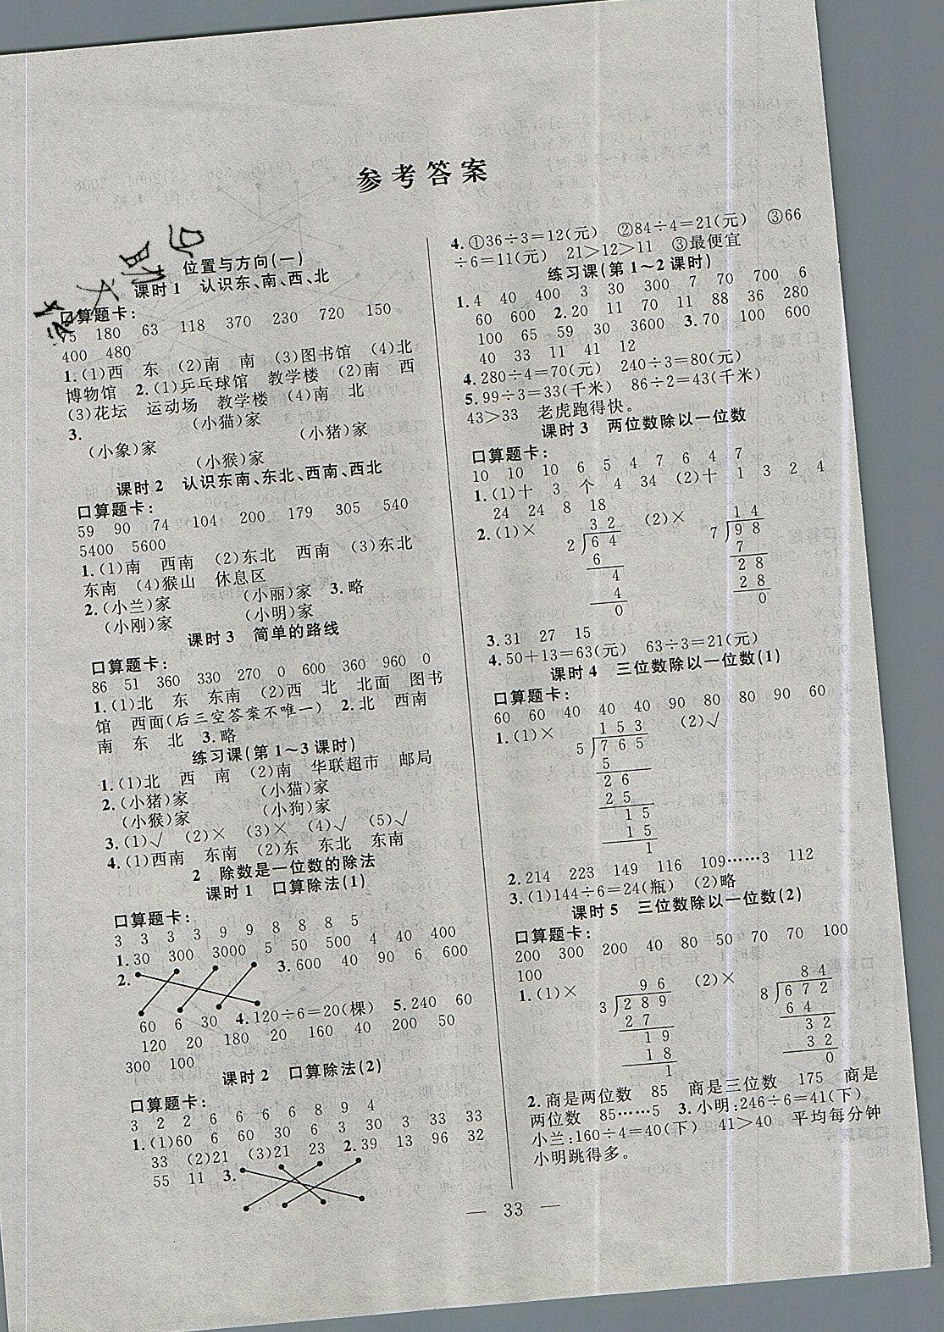 参考答案
位置与方向(一)
课时1 认识东、南、西、北
口算题卡:
75 180 63 118 370 230 720 150
400 480
1.(1)西 东 (2)南 南 (3)图书馆 (4)北
博物馆 2.(1)乒乓球馆 教学楼 (2)南 西
(3)花坛 运动场 教学楼 (4)南 北
3. (小猫)家
(小象)家 (小猪)家
(小猴)家
课时2 认识东南、东北、西南、西北
口算题卡:
59 90 74 104 200 179 305 540
5400 5600
1.(1)南 西南 (2)东北 西南 (3)东北
东南 (4)猴山 休息区
2.(小兰)家 (小丽)家 3.略
(小刚)家 (小明)家
课时3 简单的路线
口算题卡:
86 51 360 330 270 0 600 360 960 0
1.(1)北 东 东南 (2)西 北 北面 图书
馆 西面(后三空答案不唯一) 2.北 西南
南 东 北 3.略
练习课(第1~3课时)
1.(1)北 西 南 (2)南 华联超市 邮局
2.(小猪)家 (小猫)家
(小猴)家 (小狗)家
3.(1)√ (2)× (3)× (4)√ (5)√
4.(1)西南 东南 (2)东 东北 东南
2 除数是一位数的除法
课时1 口算除法(1)
口算题卡:
3 3 3 3 9 9 8 8 8 5
1.30 300 3000 5 50 500 4 40 400
2. 3.600 40 90 6 600
60 6 30 4.120÷6=20(棵) 5.240 60
120 20 180 20 160 40 200 50
300 100
课时2 口算除法(2)
口算题卡:
3 2 2 6 6 6 6 8 9 4
1.(1)60 6 60 30 6 3 30 3 33 33
33 (2)21 (3)21 23 2.39 13 96 32
55 11 3.
4.①36÷3=12(元) ②84÷4=21(元) ③66
÷6=11(元) 21>12>11 ③最便宜
练习课(第1~2课时)
1.4 40 400 3 30 300 7 70 700 6
60 600 2.20 11 70 11 88 36 280
100 65 59 30 3600 3.70 100 600
40 33 11 41 12
4.280÷4=70(元) 240÷3=80(元)
5.99÷3=33(千米) 86÷2=43(千米)
43>33 老虎跑得快。
课时3 两位数除以一位数
口算题卡:
10 10 10 6 5 4 7 6 4 7
1.(1)十 3 个 4 34 (2)十 1 3 2 4
24 24 8 18
2.(1)× 32 (2)× 14
2)64 7)98
6 7
4 28
4 28
0 0
3.31 27 15
4.50+13=63(元) 63÷3=21(元)
课时4 三位数除以一位数(1)
口算题卡:
60 60 40 40 40 90 80 80 90 60
1.(1)× 153 (2)√
5)765
5
26
25
15
15
1
2.214 223 149 116 109……3 112
3.(1)144÷6=24(瓶) (2)略
课时5 三位数除以一位数(2)
口算题卡:
200 300 200 40 80 50 70 70 100
100
1.(1)× 96 (2)× 84
3)289 8)672
27 64
19 32
18 32
1 0
2.商是两位数 85 商是三位数 175 商是
两位数 85……5 3.小明:246÷6=41(下)
小兰:160÷4=40(下) 41>40 平均每分钟
小明跳得多。
— 33 —